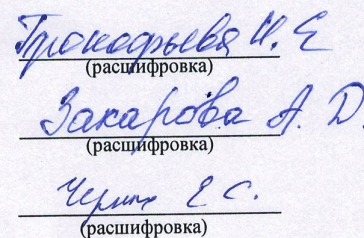 Прокофьева Н. Е
(расшифровка)
Захарова А. Д
(расшифровка)
Черных Е С.
(расшифровка)